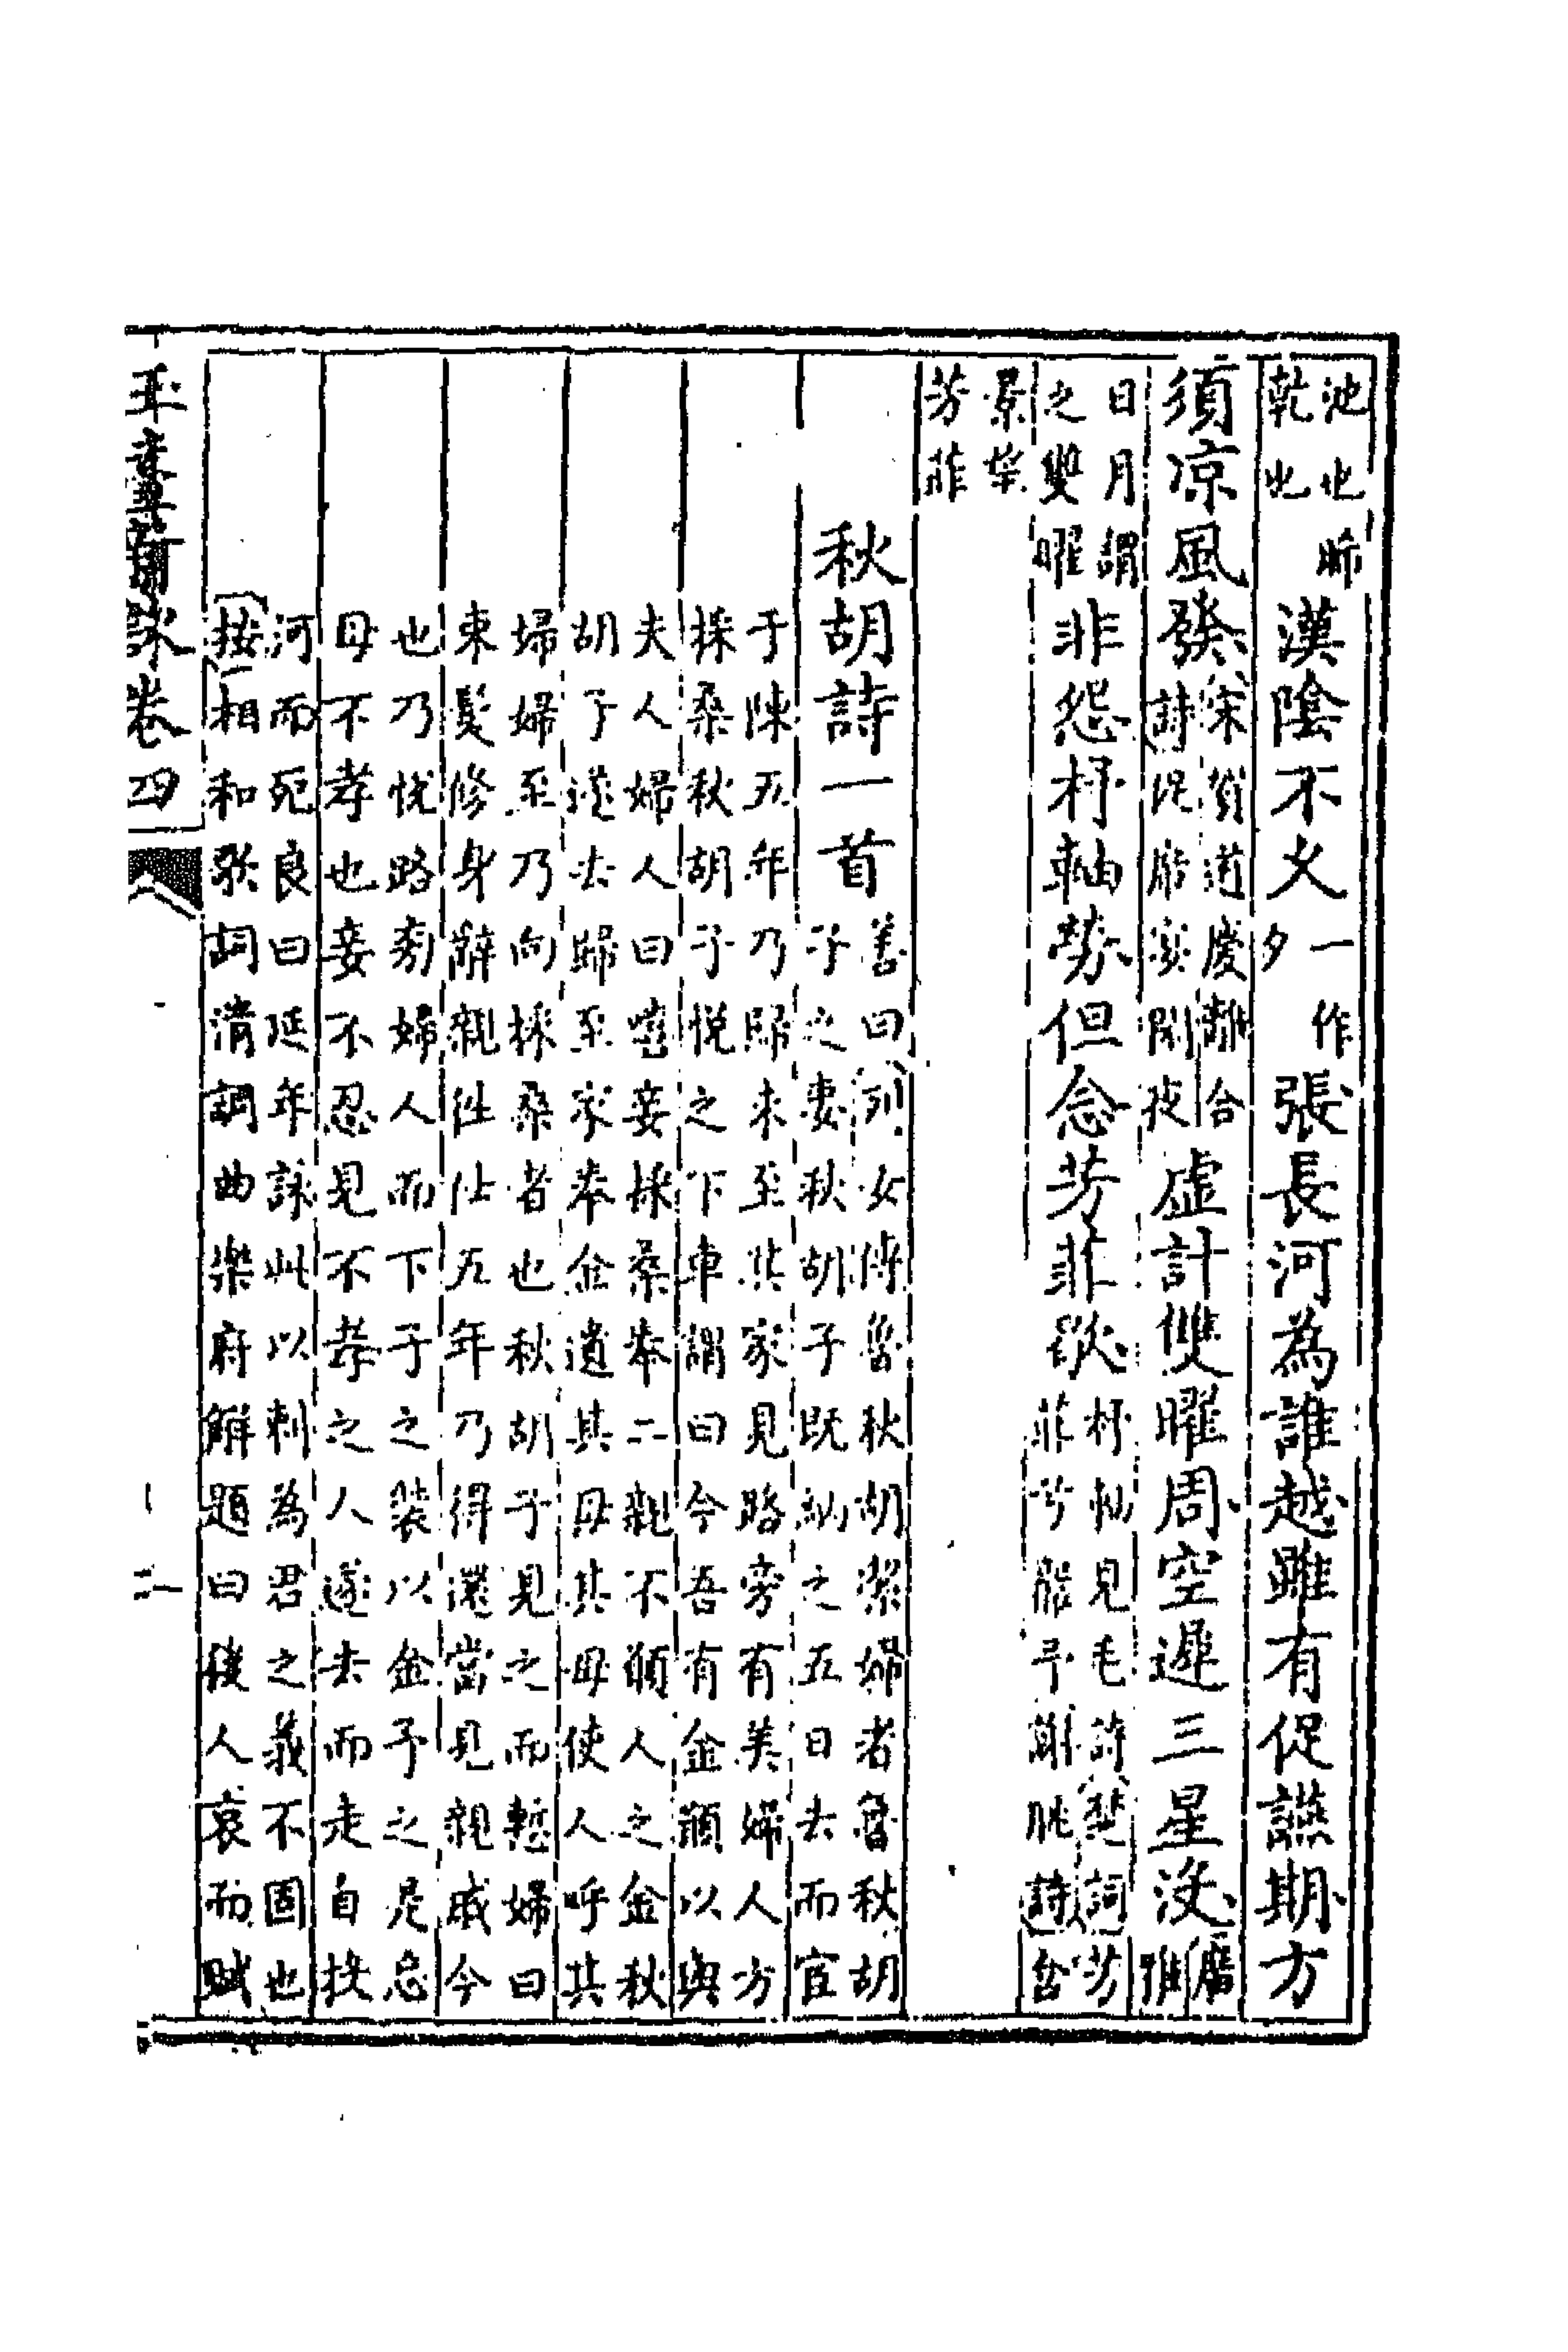 池也晞
乾也
漢陰不夂
一作
夕
張長河為誰越雖有促讌期方
須凉風發
宋賀道慶離合
詩促席宴閑夜
虛計雙曜周空遲三星没
廣
雅
日月謂
之雙曜
非怨杼軸勞但念芳菲歇
杼柚見毛詩楚詞芳
菲兮 謝朓詩
景華
芳菲
秋胡詩一首
善曰列女傳魯秋胡潔婦者魯秋胡
子之妻秋胡子既納之五日去而宦
于陳五年乃歸未至其家見路旁有美婦人方
採桑秋胡子悅之下車謂曰今吾有金願以與
夫人婦人曰嘻妾採桑奉二親不願人之金秋
胡子遂去歸至家奉金遺其母其母使人呼其
婦婦至乃向採桑者也秋胡子見之而慙婦曰
束髮修身辭親往仕五年乃得還當見親戚今
也乃悅路旁婦人而下子之裝以金予之是忘
母不孝也妾不忍見不孝之人遂去而走自投
河而死良曰延年詠此以刺為君之義不固也
按相和歌詞清調曲樂府解題曰後人哀而賦
玉臺新詠卷四
二